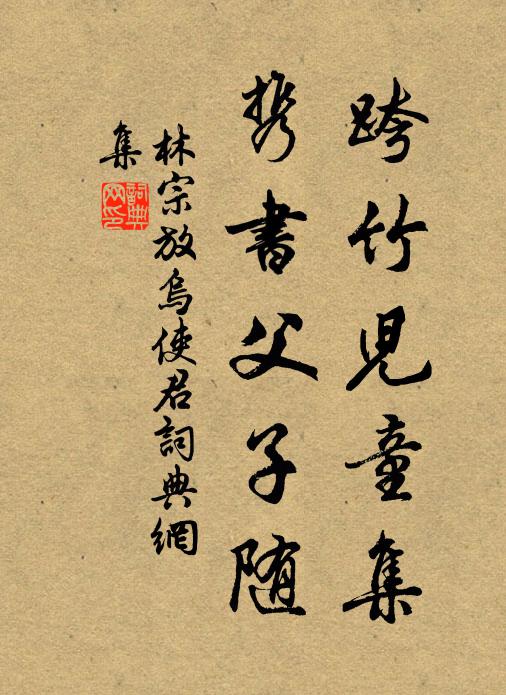 跨竹児童集
携書父子随
林宗放烏使君詞典網
集
詞典
网印